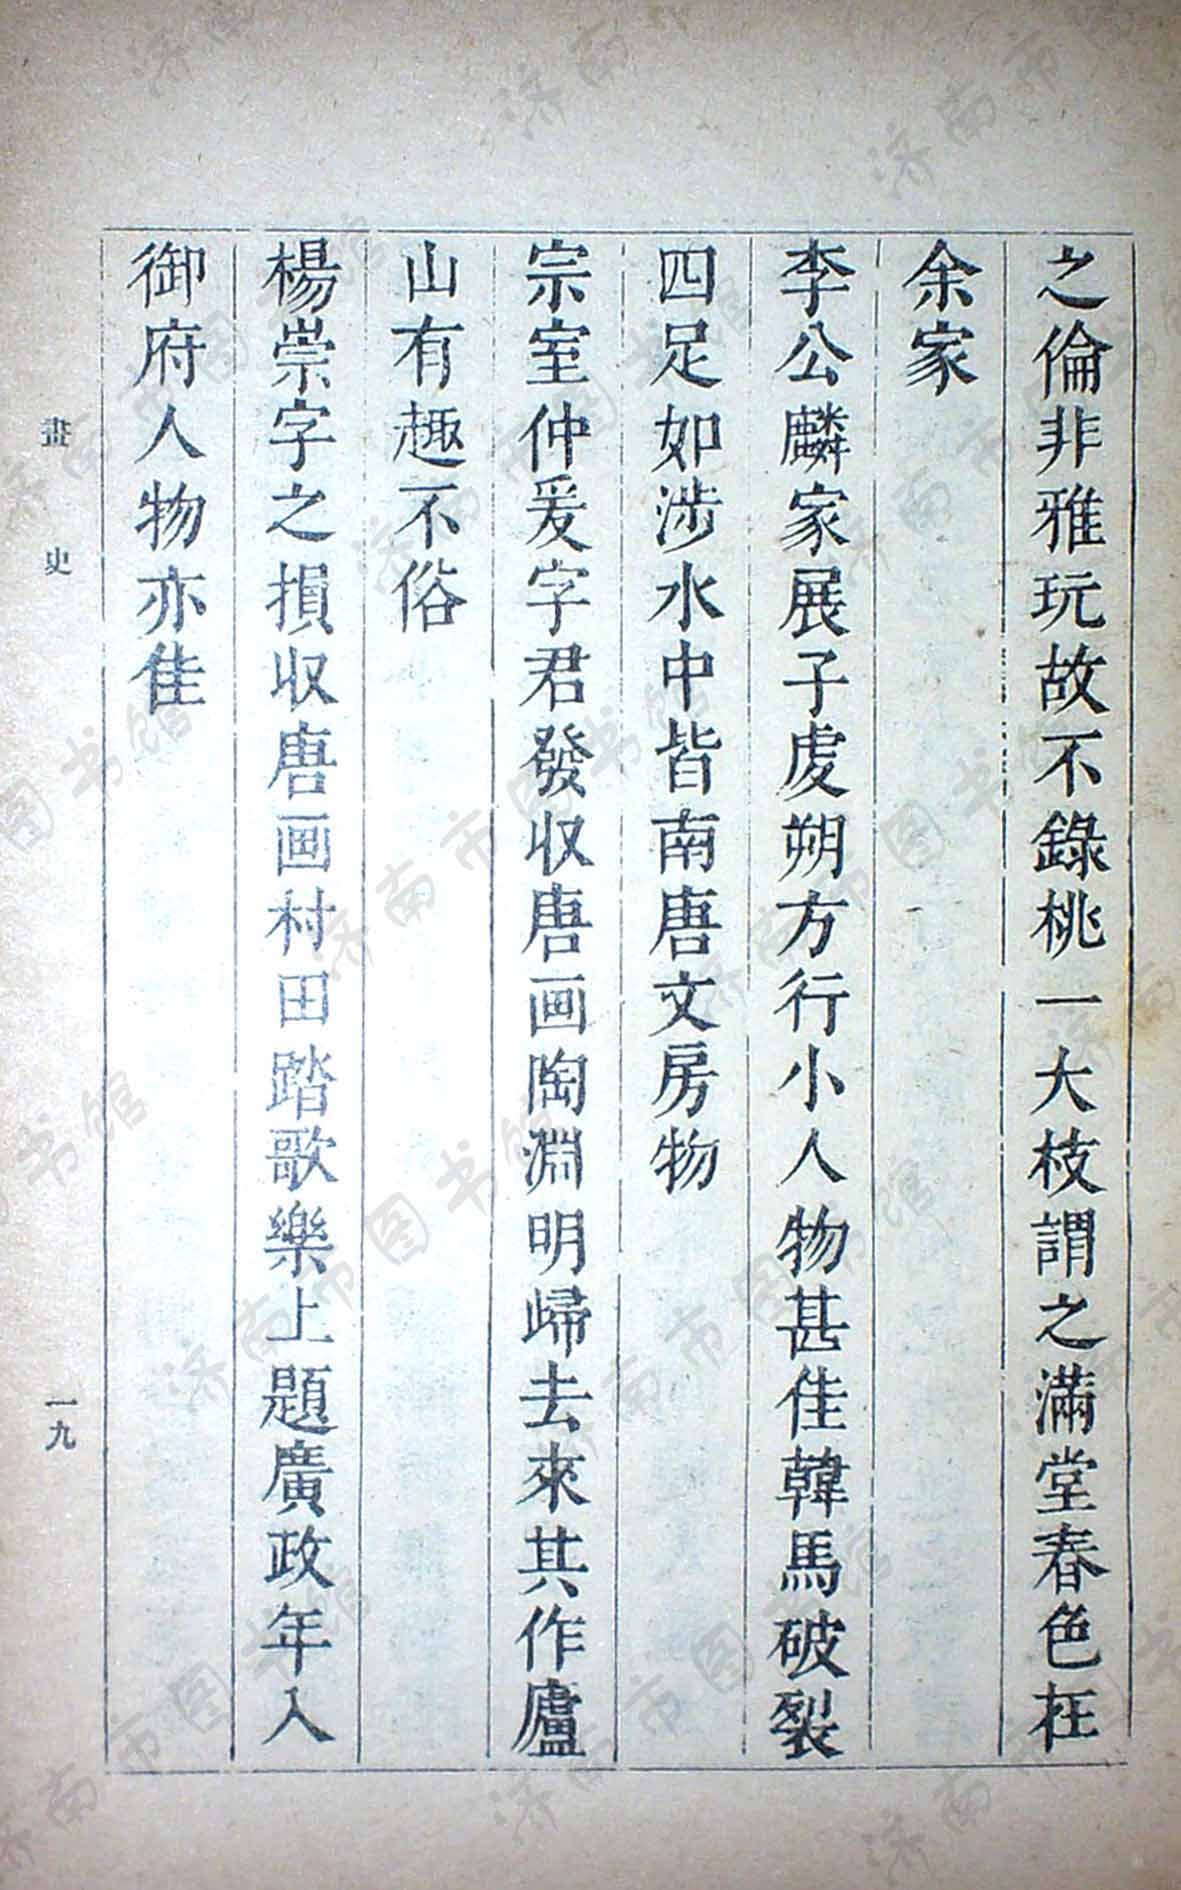 之倫非雅玩故不錄桃一大枝謂之滿堂春色在
余家
李公麟家展子虔朔方行小人物甚佳韓馬破裂
四足如涉水中皆南唐文房物
宗室仲爰字君發収唐画陶淵明歸去來其作廬
山有趣不俗
楊崇字之損収唐画村田踏歌樂上題廣政年入
御府人物亦佳
畫史
一九
济南市图书馆